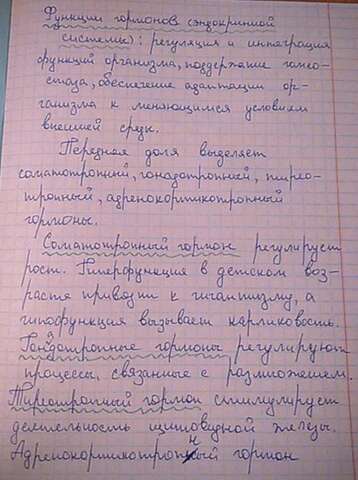 Функции гормонов (эндокринной
системы): регуляция и интеграция
функций организма, поддержание гомео-
стаза, обеспечение адаптации ор-
ганизма к меняющимся условиям
внешней среды.
Передняя доля выделяет
соматотропный, гонадотропный, тирео-
тропный, адренокортикотропный
гормоны.
Соматотропный гормон регулирует
рост. Гиперфункция в детском воз-
расте приводит к гигантизму, а
гипофункция вызывает карликовость.
Гонадотропные гормоны регулируют
процессы, связанные с размножением.
Тиреотропный гормон стимулирует
деятельность щитовидной железы.
Адренокортикотропный гормон